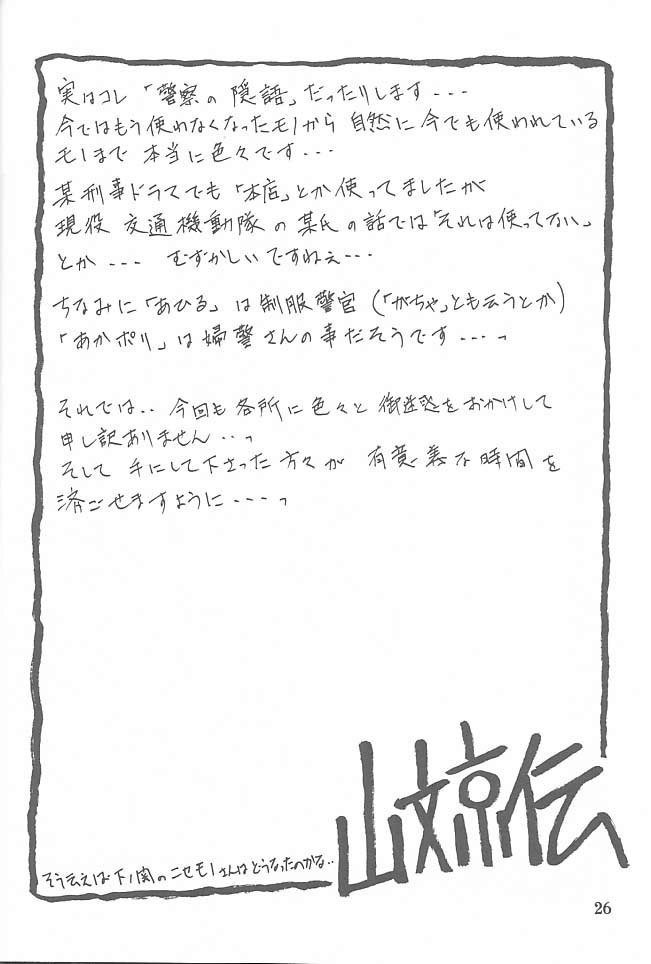 実はコレ「警察の隠語」だったりします---
今ではもう使わなくなったモノから自然に今でも使われている
モノまで本当に色々です・・・
某刑事ドラマでも「本店」とか使ってましたが
現役 交通機動隊の某氏の話では「それは使ってない」
とか--- むずかしいですねぇ---
ちなみに「あひる」は制服警官（「がちゃ」とも云うとか）
「あかポリ」は婦警さんの事だそうです---っ
それでは‥今回も各所に色々と御迷惑をおかけして
申し訳ありません‥っ
そして手にして下さった方々が有意義な時間を
済ごせますように---っ
そう云えば下ノ関のニセモノさんはどうなったのかな‥
山文京伝
26